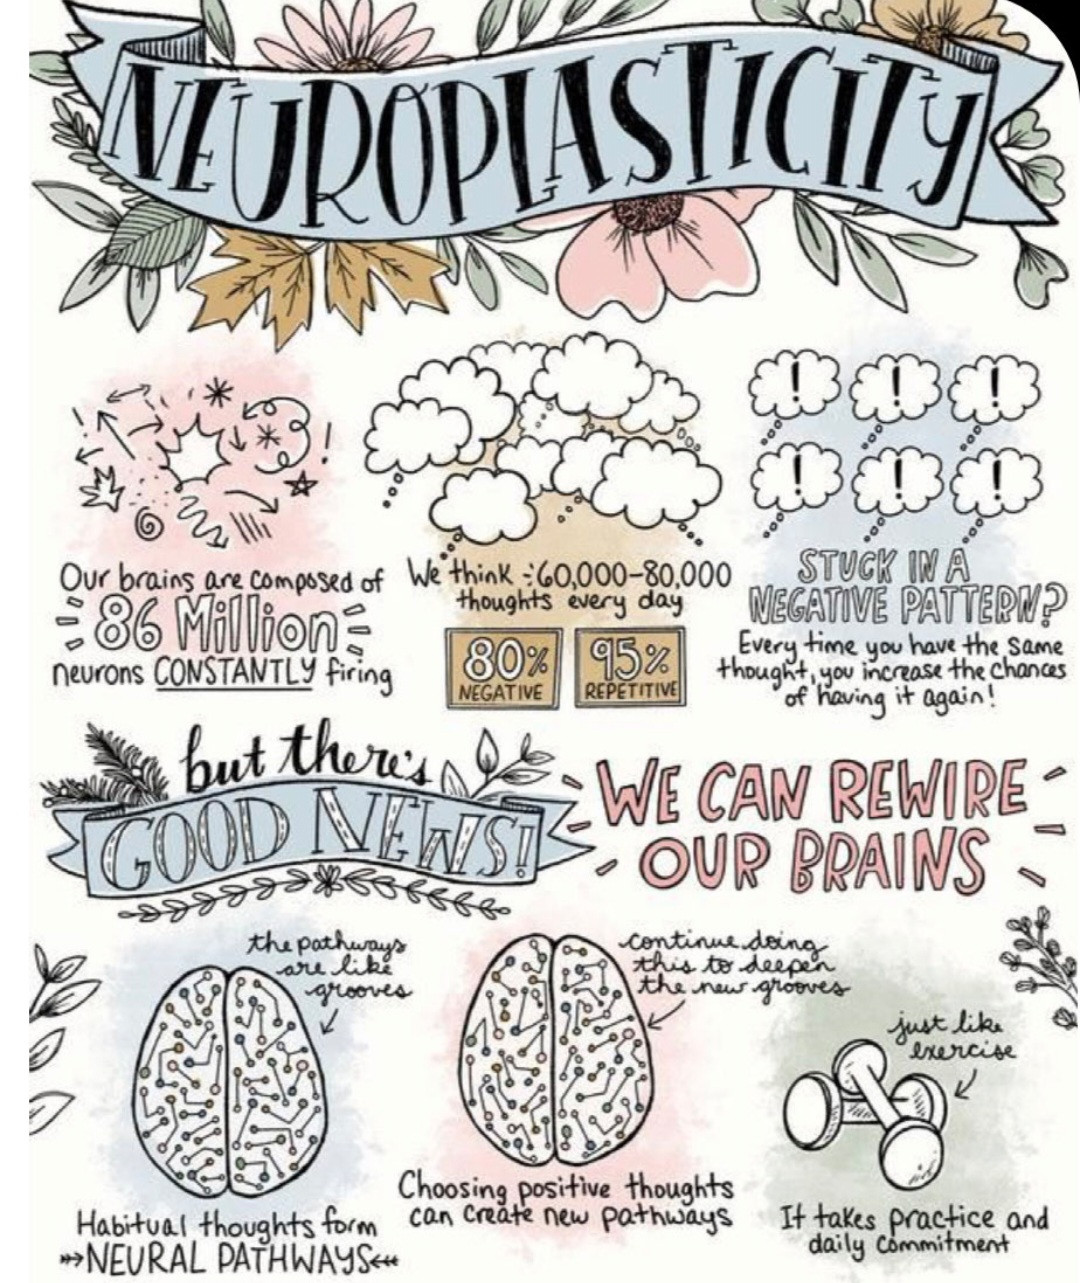 NEUROPLASTICITY
Our brains are composed of
86 Million
neurons CONSTANTLY firing
We think ~60,000-80,000
thoughts every day
80%
NEGATIVE
95%
REPETITIVE
STUCK IN A
NEGATIVE PATTERN?
Every time you have the same
thought, you increase the chances
of having it again!
but there's
GOOD NEWS!
WE CAN REWIRE
OUR BRAINS
the pathways
are like
grooves
Habitual thoughts form
NEURAL PATHWAYS
continue doing
this to deepen
the new grooves
Choosing positive thoughts
can create new pathways
just like
exercise
It takes practice and
daily commitment